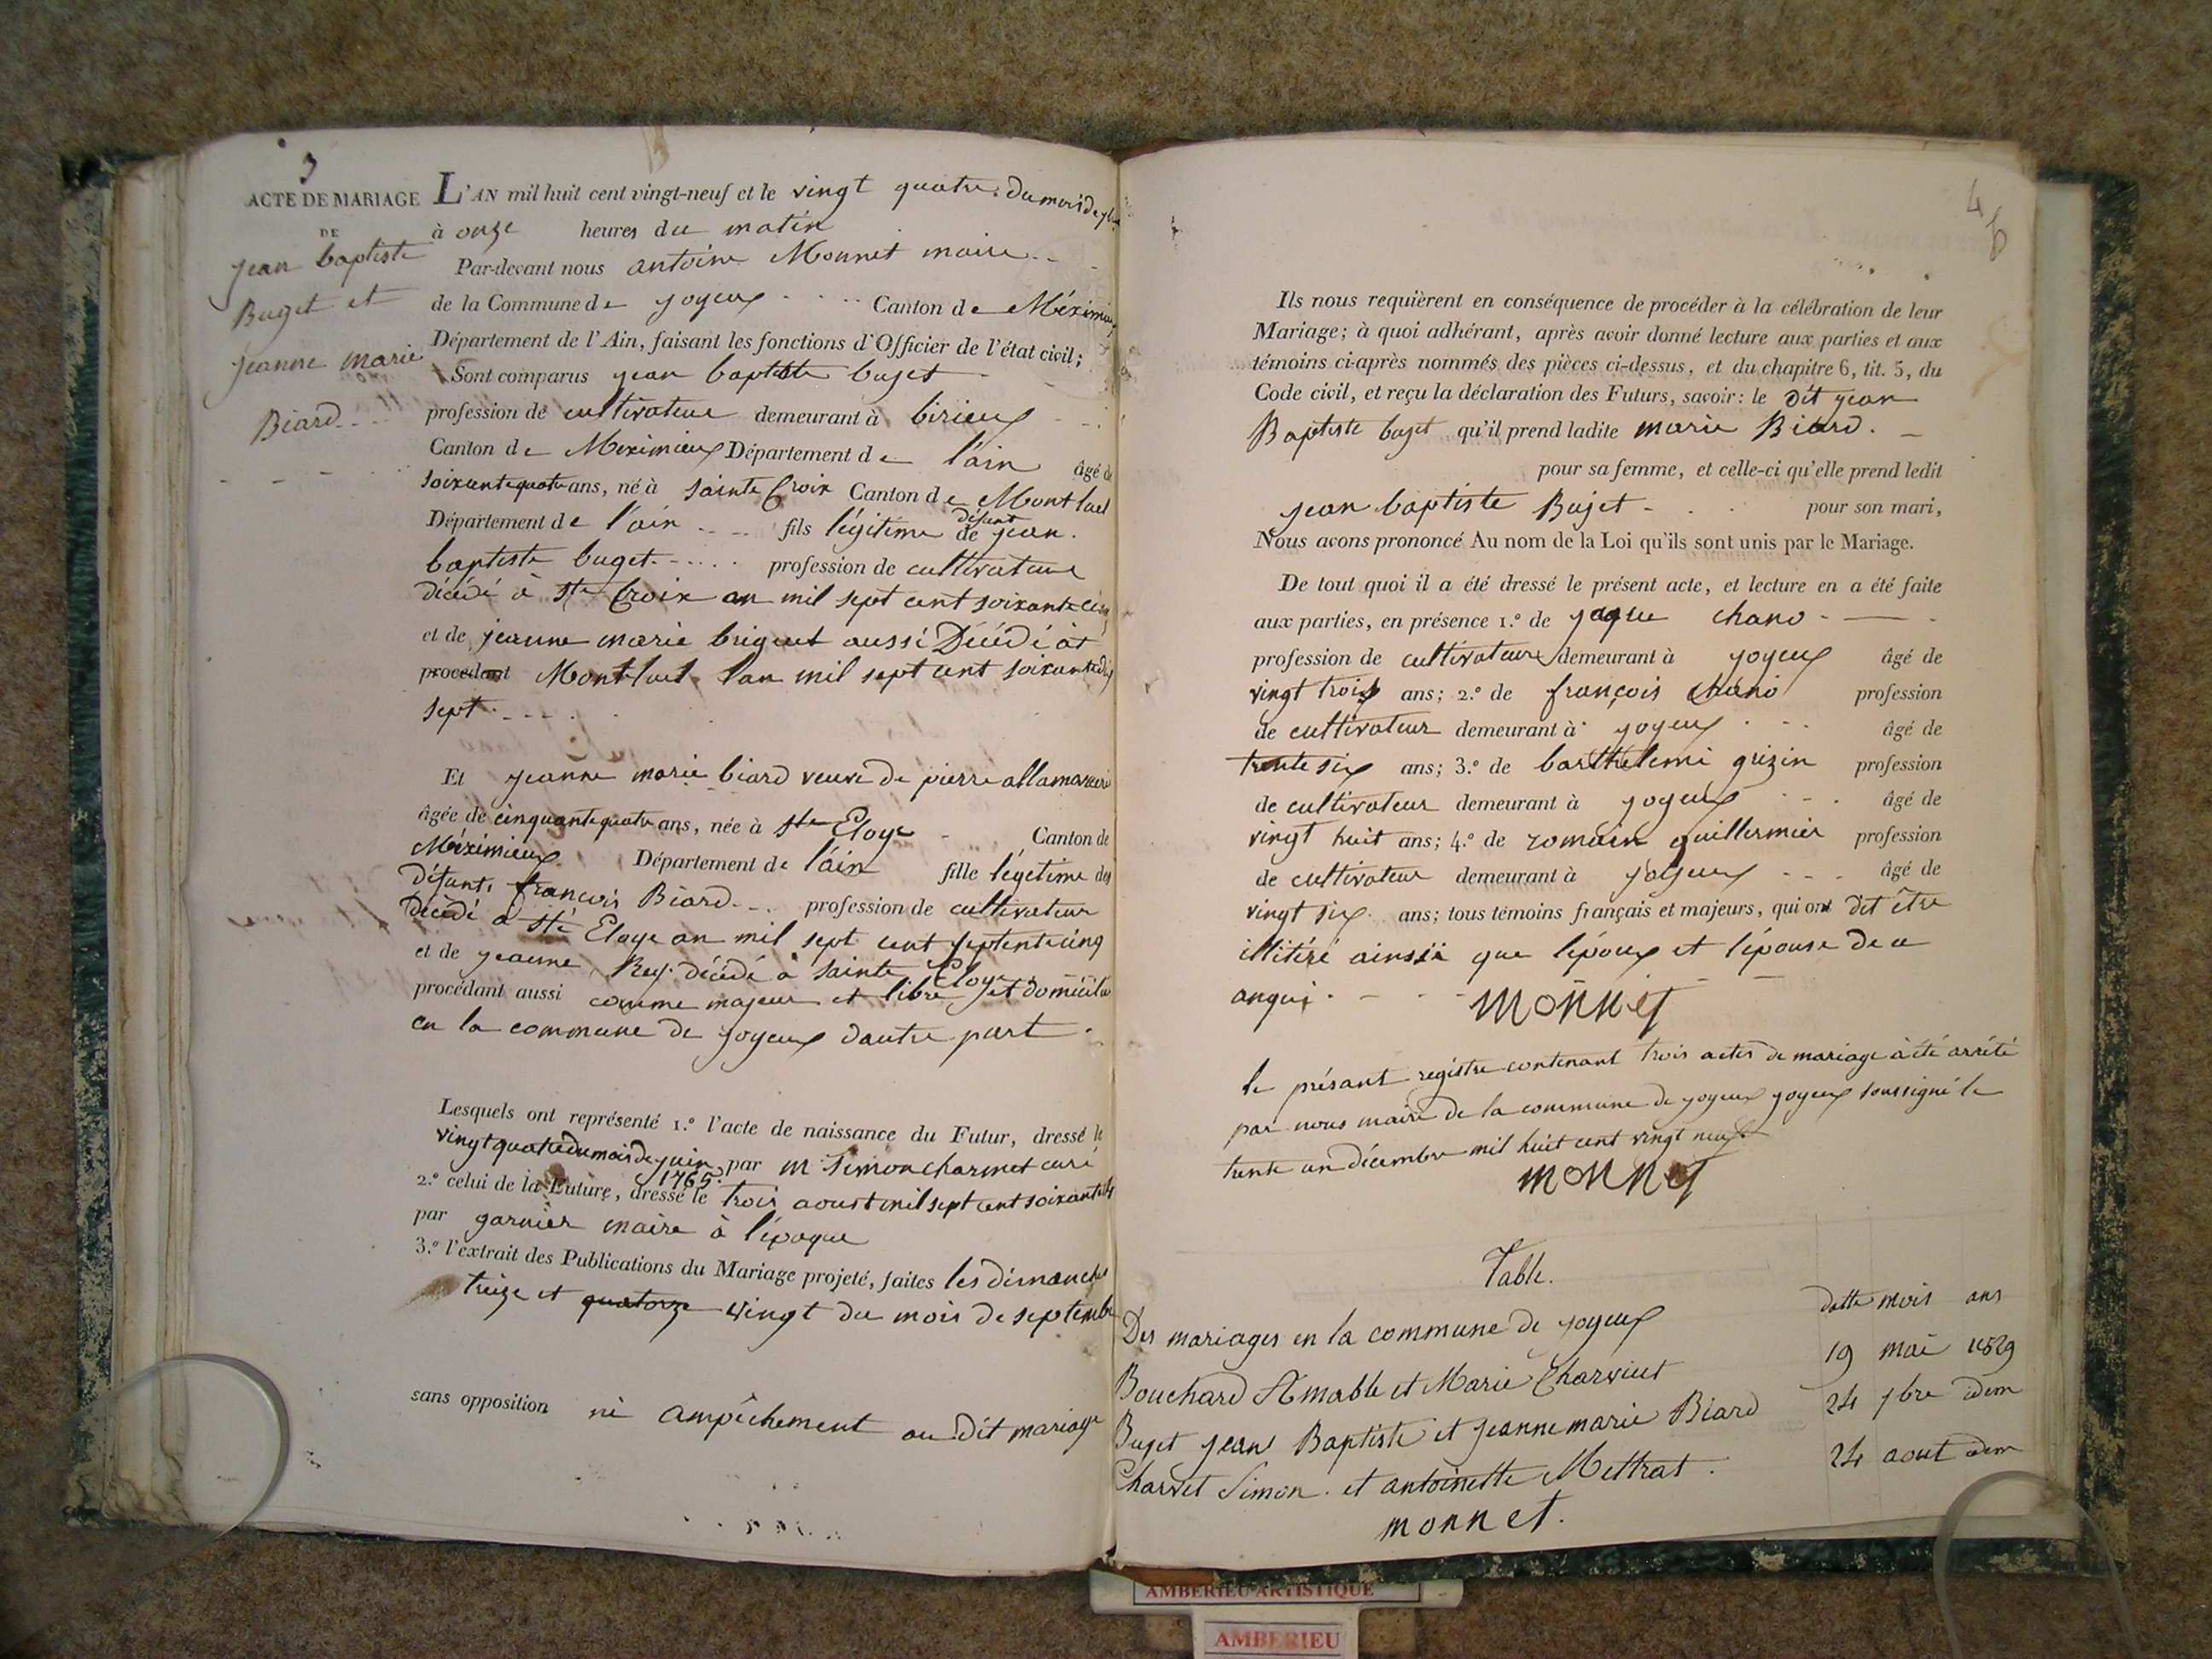 3
ACTE DE MARIAGE
DE
jean baptiste
Buget et
jeanne marie
Biard
L'AN mil huit cent vingt-neuf et le vingt quatre du mois de 7bre
à onze heures du matin
Par-devant nous antoine Monnet maire
de la Commune de joyeux Canton de Méximieux
Département de l'Ain, faisant les fonctions d'Officier de l'état civil;
Sont comparus jean baptiste buget
profession de cultivateur demeurant à birieux
Canton de Meximieux Département de l'ain âgé de
soixante quatre ans, né à sainte Croix Canton de Montluel
Département de l'ain fils légitime de défunt jean
baptiste buget profession de cultivateur
décédé à Ste Croix an mil sept cent soixante cinq
et de jeanne marie briguet aussi Décédé à
procedant Montluel l'an mil sept cent soixante dix
sept
Et jeanne marie biard veuve de pierre
âgée de cinquante quatre ans, née à Ste Eloye Canton de
Méximieux Département de l'ain fille légetime des
défunts françois Biard profession de cultivateur
décédé a Ste Eloye an mil sept cent septente cinq
et de jeanne Rey décédé à sainte Eloye
procédant aussi comme majeur et libre et domicilié
en la commune de joyeux dautre part
Lesquels ont représenté 1.º l'acte de naissance du Futur, dressé le
vingt quatre du mois de juin 1765 par m Simon charmet curé
2.º celui de la Future, dressé le trois aoust mil sept cent soixante
par garnier maire à l'époque
3.º l'extrait des Publications du Mariage projeté, faites les dimanches
treize et quatorze vingt du mois de septembre
sans opposition ni ampêchement au dit mariage
4
Ils nous requièrent en conséquence de procéder à la célébration de leur
Mariage; à quoi adhérant, après avoir donné lecture aux parties et aux
témoins ci-après nommés des pièces ci-dessus, et du chapitre 6, tit. 5, du
Code civil, et reçu la déclaration des Futurs, savoir: le dit jean
Baptiste bujet qu'il prend ladite marie Biard.
pour sa femme, et celle-ci qu'elle prend ledit
jean baptiste Bujet pour son mari,
Nous avons prononcé Au nom de la Loi qu'ils sont unis par le Mariage.
De tout quoi il a été dressé le présent acte, et lecture en a été faite
aux parties, en présence 1.º de jaque chano
profession de cultivateur demeurant à joyeux âgé de
vingt trois ans; 2.º de françois chano profession
de cultivateur demeurant à joyeux âgé de
trente six ans; 3.º de barthelemi grizin profession
de cultivateur demeurant à joyeux âgé de
vingt huit ans; 4.º de romain guillermier profession
de cultivateur demeurant à joyeux âgé de
vingt six ans; tous témoins français et majeurs, qui ont dit être
illitéré ainsi que l'époux et l'épouse de ce
anqui
monnet
le présant régistre contenant trois actes de mariage à été arrêté
par nous maire de la commune de joyeux joyeux soussigné le
trente un décembre mil huit cent vingt neuf
monnet
Table.
Des mariages en la commune de joyeux datte mois ans
Bouchard Amable et Marie Charvieut 19 mai 1829
Bujet jean Baptiste et jeanne marie Biard 24 7bre idem
Charvet Simon et antoinette Mettrat 24 aout idem
monnet.
AMBERIEU ARTISTIQUE
AMBERIEU